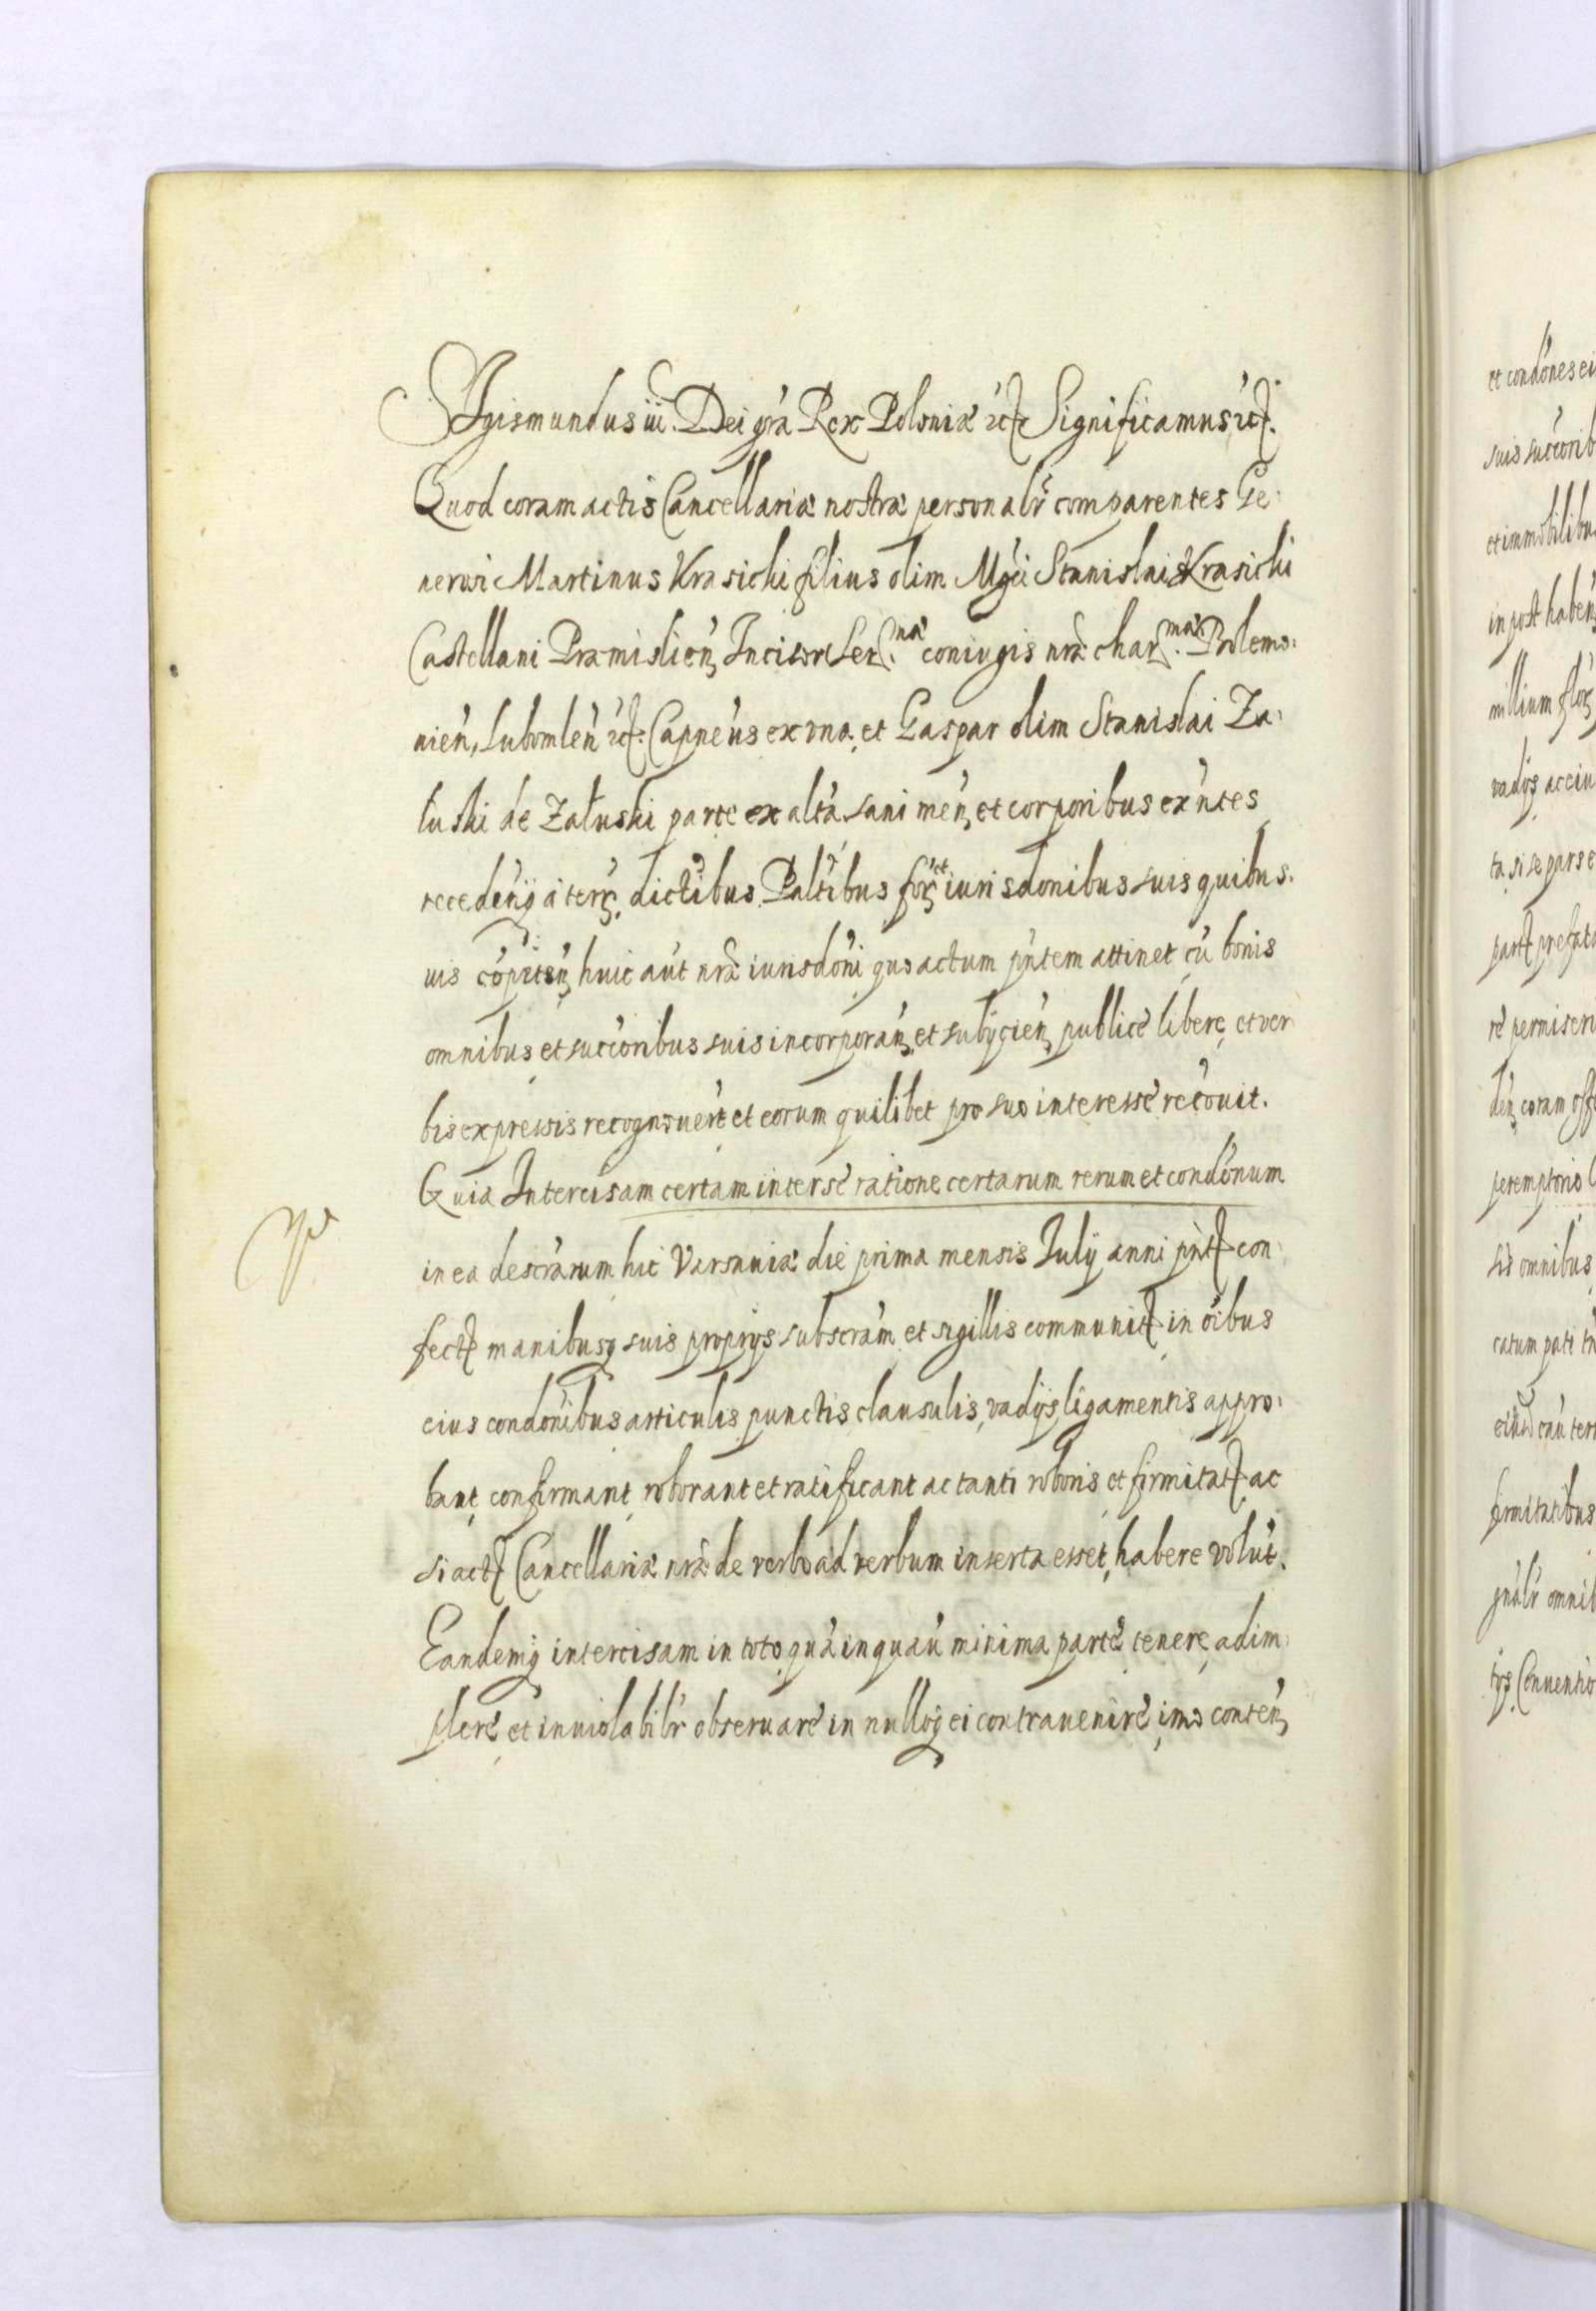 Sigismundus iii. Dei gr̃a Rex Poloniæ etc. Significamus etc.
Quod coram actis Cancellariæ nostræ personalr̃ comparentes Ge:
nerosi Martinus Krasicki filius olim Mgci Stanislai Krasicki
Castellani Præmislien̄ Incisor Ser.næ coniugis nr̃æ char.mæ Bolemo:
nien̄, Lubomlen̄ etc. Capneus ex vna, et Gaspar olim Stanislai Za:
luski de Załuski parte ex altã sani men̄ et corporibus exñtes
receden̄q à terr̄ dictibus Paltibus for̄ et iurisdonibus suis quibus:
uis huic aũt nr̃æ iurisdoni quo actum pñtem attinet cũ bonis
omnibus et succoribus suis incorporan̄ et subijcien̄ publicè libere, et ver
bis expressis recognouer̃t et eorum quilibet pro suo interesse recouit.
Quia Intercisam certam inter sè ratione certarum rerum et condonum
in ea descrarum hic Varsauiæ die prima mensis Iulij anni pñt con:
fect manibusq suis proprijs subscram et sigillis communit in oibus
eius condonibus articulis punctis clausulis, vadijs ligamentis appro:
bant, confirmant, roborant et ratificant ac tanti roboris et firmitat ac
si act Cancellariæ nr̃æ de verbo ad verbum inserta esset, habere volut.
Eandemq intercisam in toto, quã in quauis minima parte tenere, adim:
plere et inuiolabilr̃ obseruare in nulloq ei contrauenire, imo conten̄
et condones ei
suis succorib
et immobilibu
in post haben̄
millium flor̄
vadijs ac eiu
ta, si se pars e
part prefata
re permiseri
den̄ coram off
peremptorio
sis omnibus
catum pati
firmitatibus
gnalr̃ omnib
ijs. Conuentio